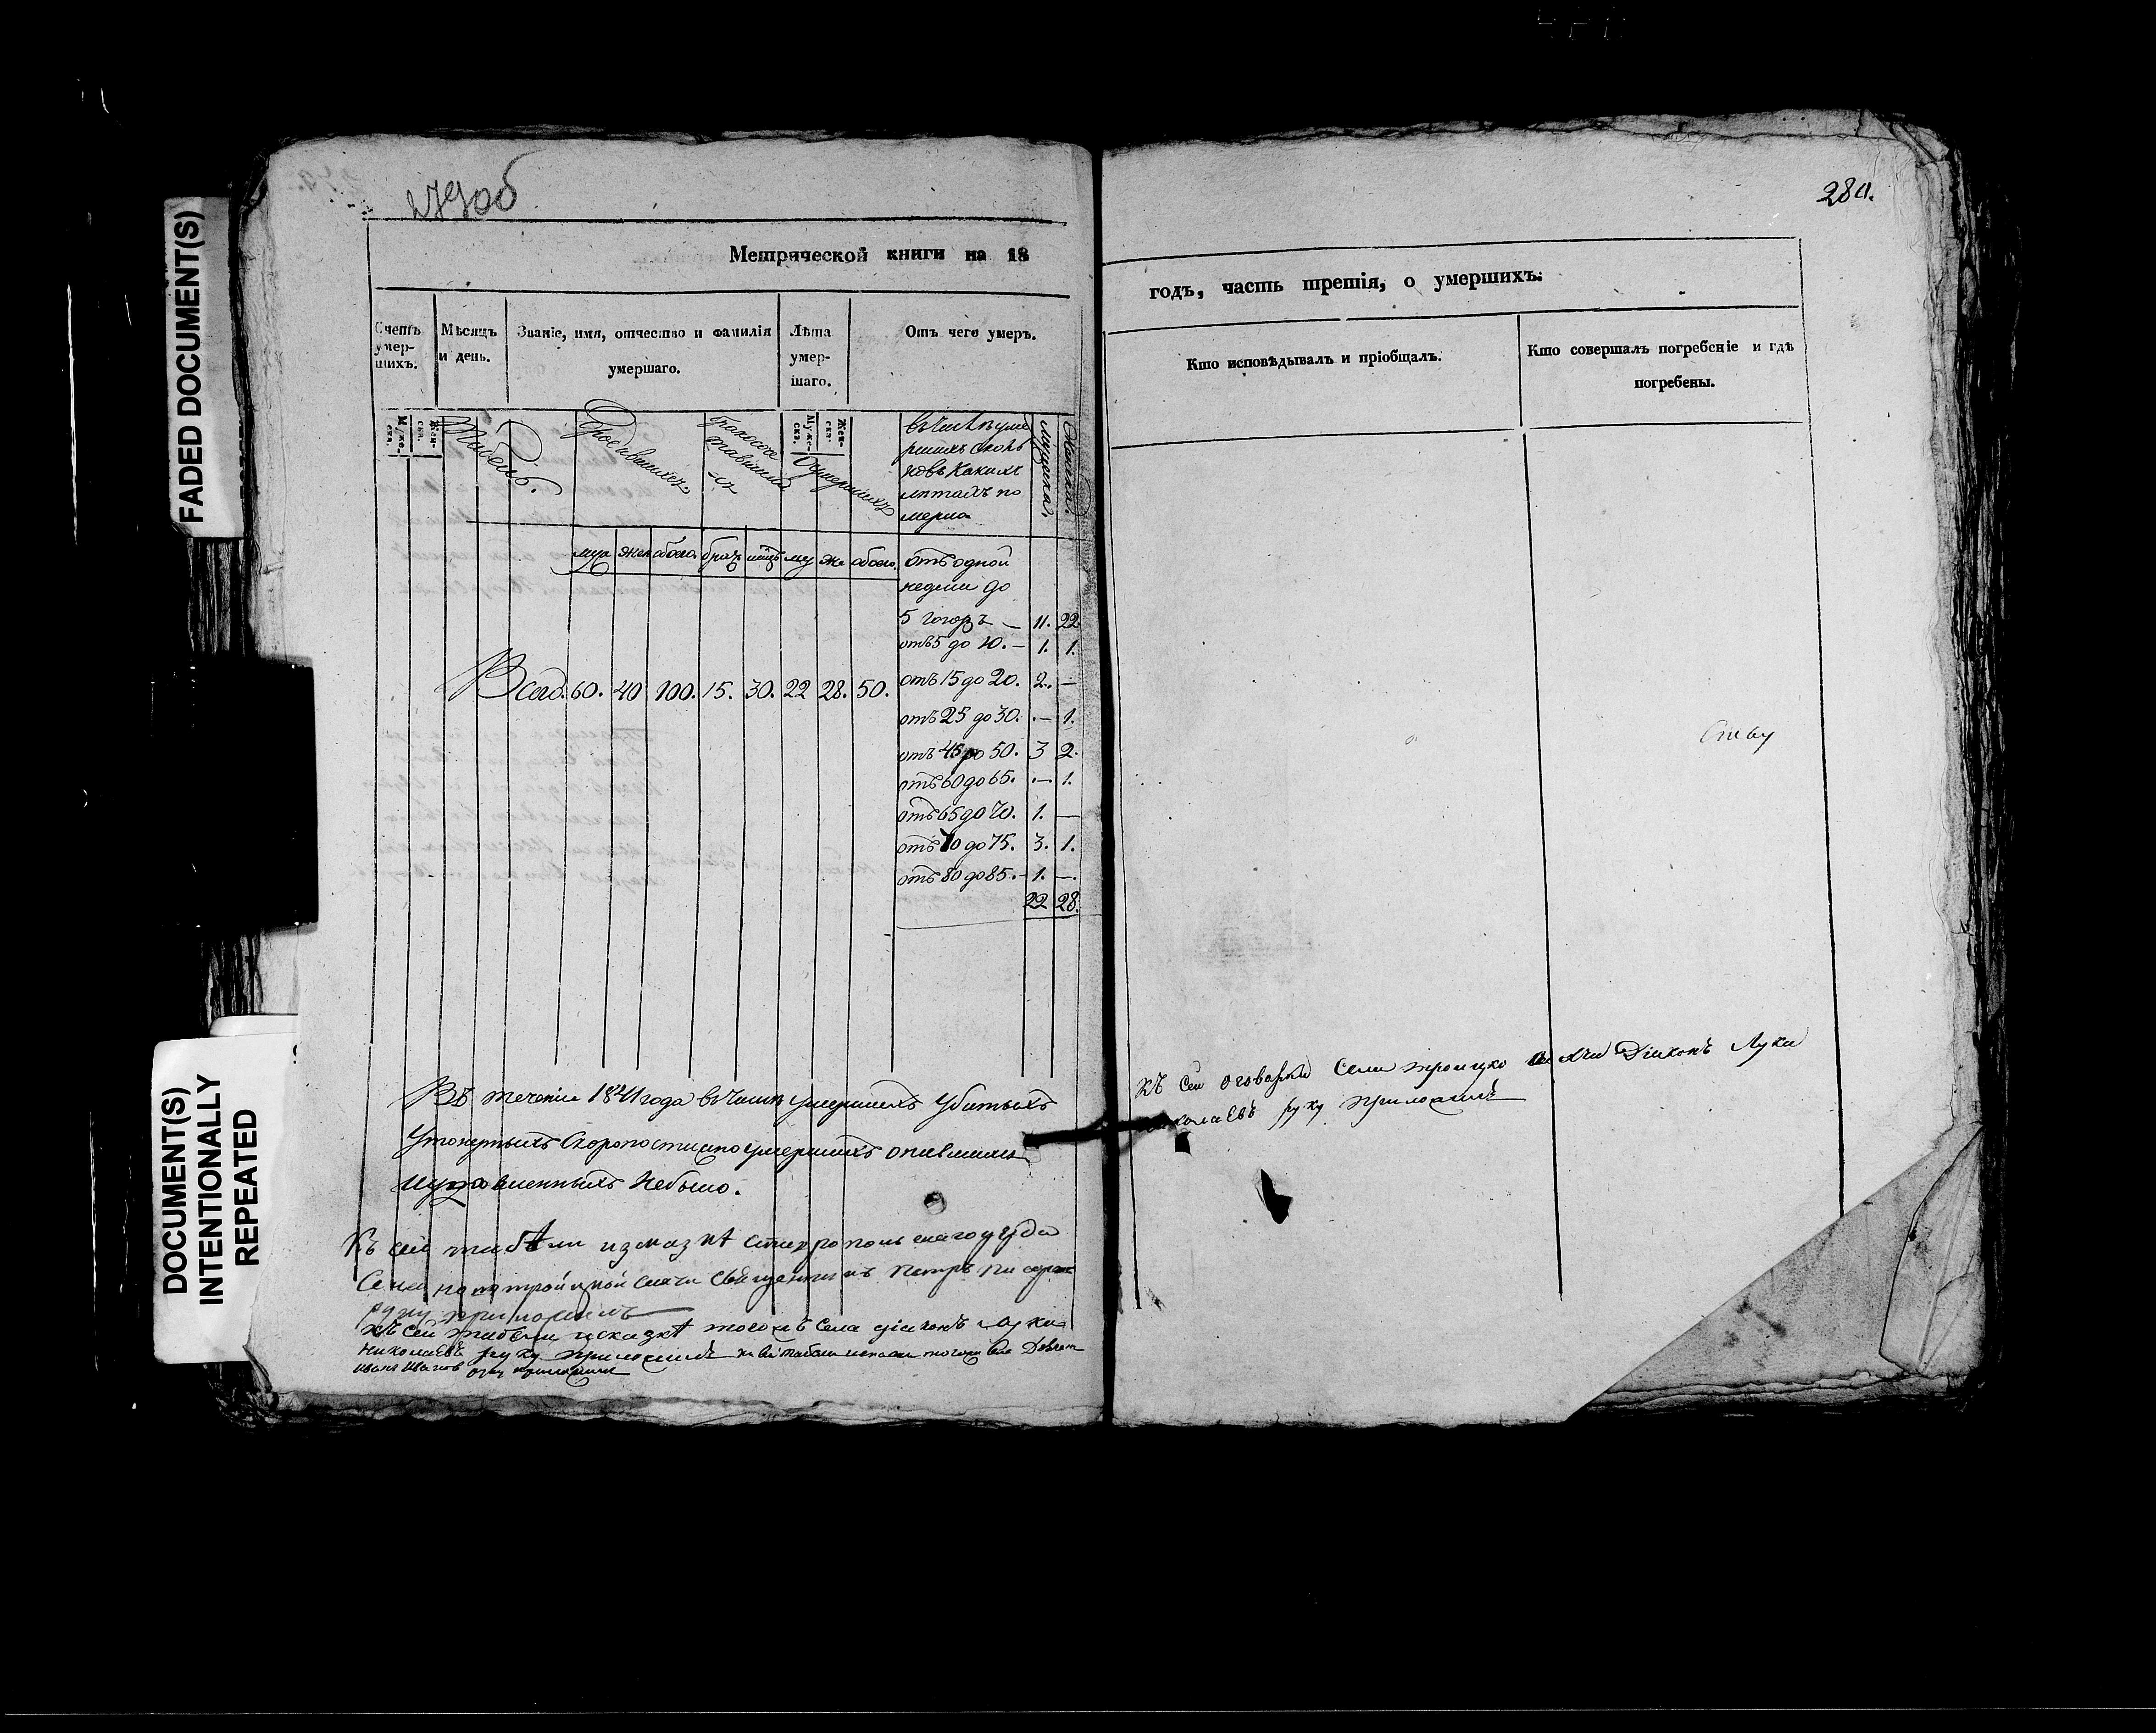 FADED DOCUMENT(S)
DOCUMENT(S)
INTENTIONALLY
REPEATED
279об
Метрической книги на 18
Счетъ умер-шихъ.
Мѣсяцъ и день.
Званіе, имя, отчество и фамилія умершаго.
Лѣта умер-шаго.
Отъ чего умеръ.
Муже-ска.
Жен-ска.
Муже-ска.
Жен-ска.
Табель.
Родившихся
Бракосочетавшихся
Умершихъ
въ числѣ уме
ршихъ сколь
ковъ какихъ
лѣтахъ по
мерло
мужеска.
женска.
муж жен обоего. браъ лицъ му же обоего.
отъ одной
недели до
5 годовъ — 11. 22
отъ 5 до 10. — 1. 1.
Всего. 60. 40 100. 15. 30. 22 28. 50.
отъ 15 до 20. 2. —
отъ 25 до 30. — 1.
отъ 45 до 50. 3 2.
отъ 60 до 65. — 1.
отъ 65 до 70. 1. —
отъ 70 до 75. 3. 1.
отъ 80 до 85. — 1. —
22 28.
Въ теченіи 1841 года въ числѣ умершихъ убитыхъ
утонутыхъ скоропостижно умершихъ опившихся
и удавленныхъ небыло.
Къ сей табѣли
священникъ Петръ
руку приложилъ
Къ сей табели и сказкѣ тогожъ села діаконъ Лука
Николаевъ руку приложилъ къ сей табели тогожъ села
Иванъ Ивановъ руку приложилъ
280.
годъ, часть третія, о умершихъ.
Кто исповѣдывалъ и пріобщалъ.
Кто совершалъ погребеніе и гдѣ
погребены.
Къ сей оговорки села Діаконъ Лука
Николаевъ руку приложилъ